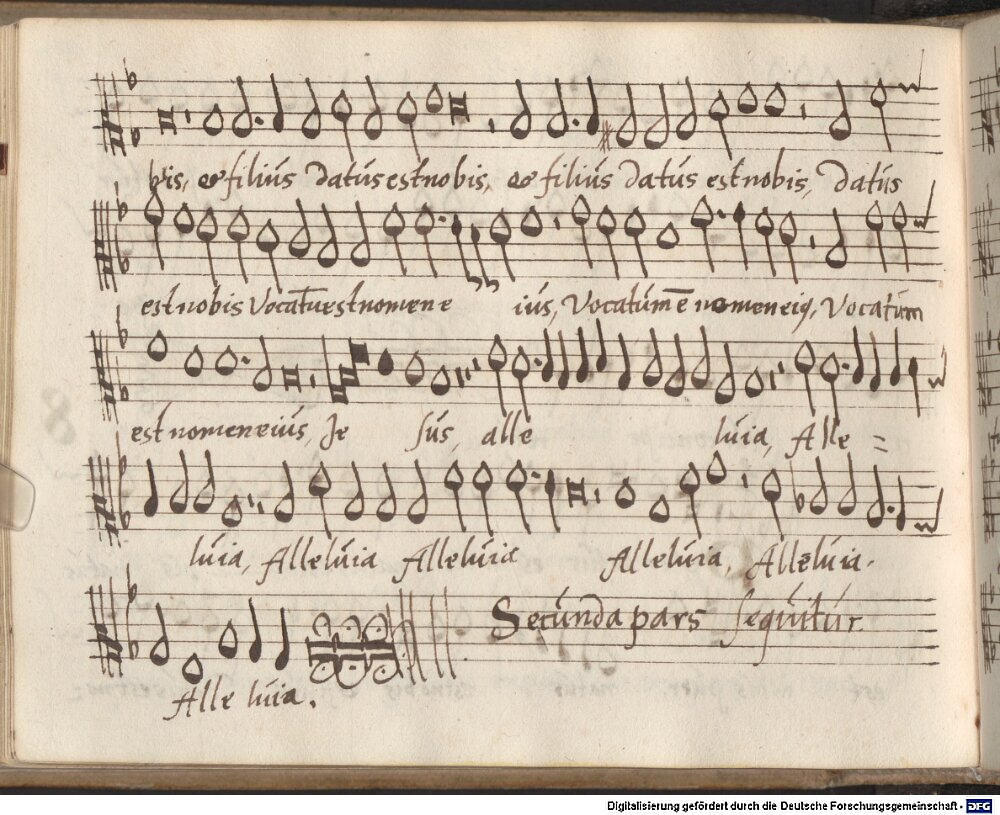 bis, & filius datus est nobis, & filius datus est nobis, datus
est nobis Vocatur est nomen e ius, Vocatum ē nomen eiꝰ, Vocatum
est nomen eius, Je sus, alle luia, Alle =
luia, Alleluia Alleluia Alleluia, Alleluia.
Secunda pars sequitur
Alle luia.
Digitalisierung gefördert durch die Deutsche Forschungsgemeinschaft - DFG